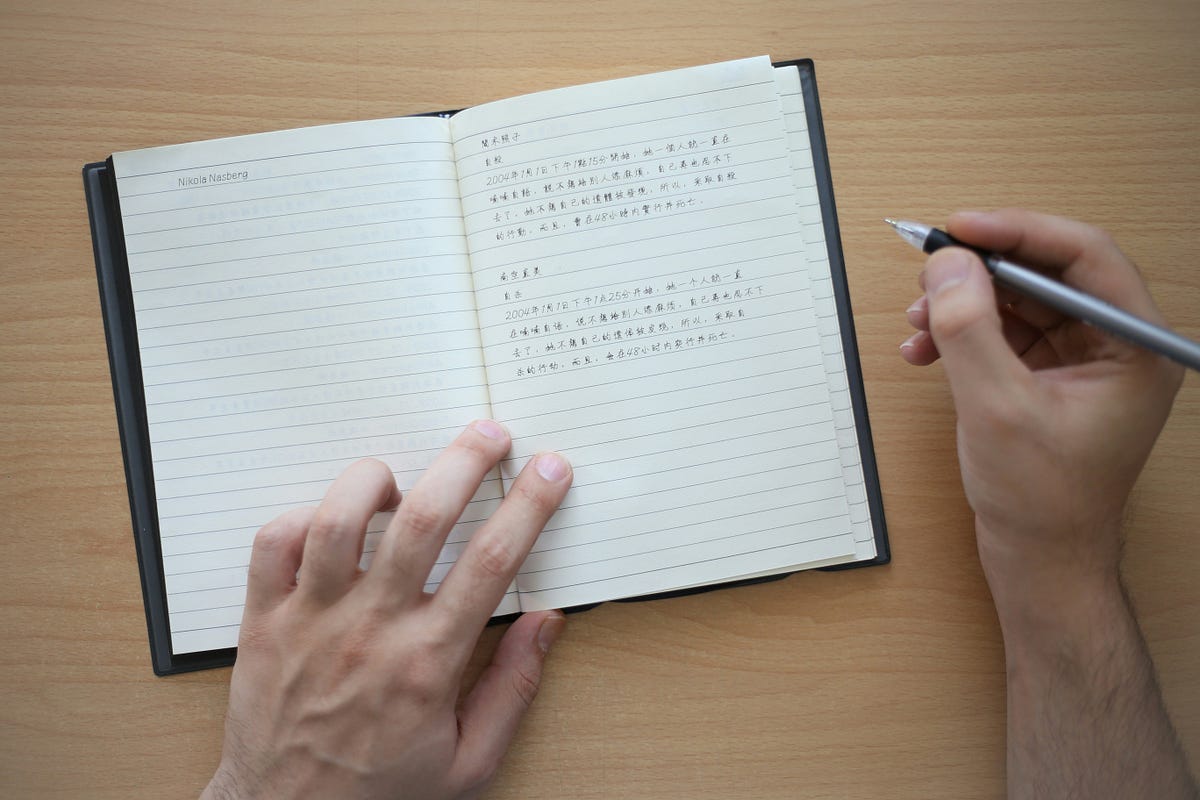 Nikola Nasberg
間木照子
自殺
2004年1月1日下午1點15分開始，她一個人就一直在
喃喃自語，說不想給別人添麻煩，自己再也忍不下
去了，她不想自己的遺體被發現，所以，采取自殺
的行動，而且，會在48小時內實行并死亡。
南空直美
自杀
2004年1月1日下午1点25分开始，她一个人就一直
在喃喃自语，说不想给别人添麻烦，自己再也忍不下
去了，她不想自己的遗体被发现，所以，采取自
杀的行动，而且，会在48小时内实行并死亡。